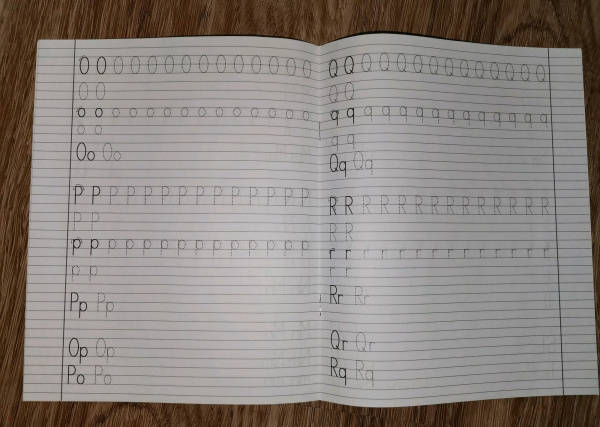 O O O O O O O O O O O O O O
O O
o o o o o o o o o o o o o o
o o
Oo Oo
P P P P P P P P P P P P P P
P P
p p p p p p p p p p p p p p
p p
Pp Pp
Op Op
Po Po
Q Q Q Q Q Q Q Q Q Q Q Q Q Q
Q Q
q q q q q q q q q q q q q q
q q
Qq Qq
R R R R R R R R R R R R R R
R R
r r r r r r r r r r r r r r
r r
Rr Rr
Qr Qr
Rq Rq